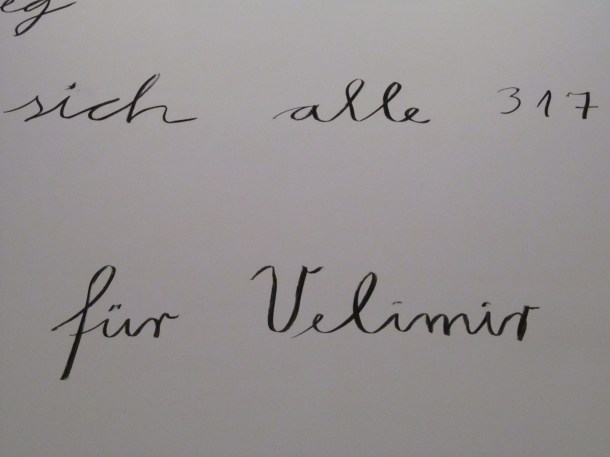 sich alle 317
für Velimir